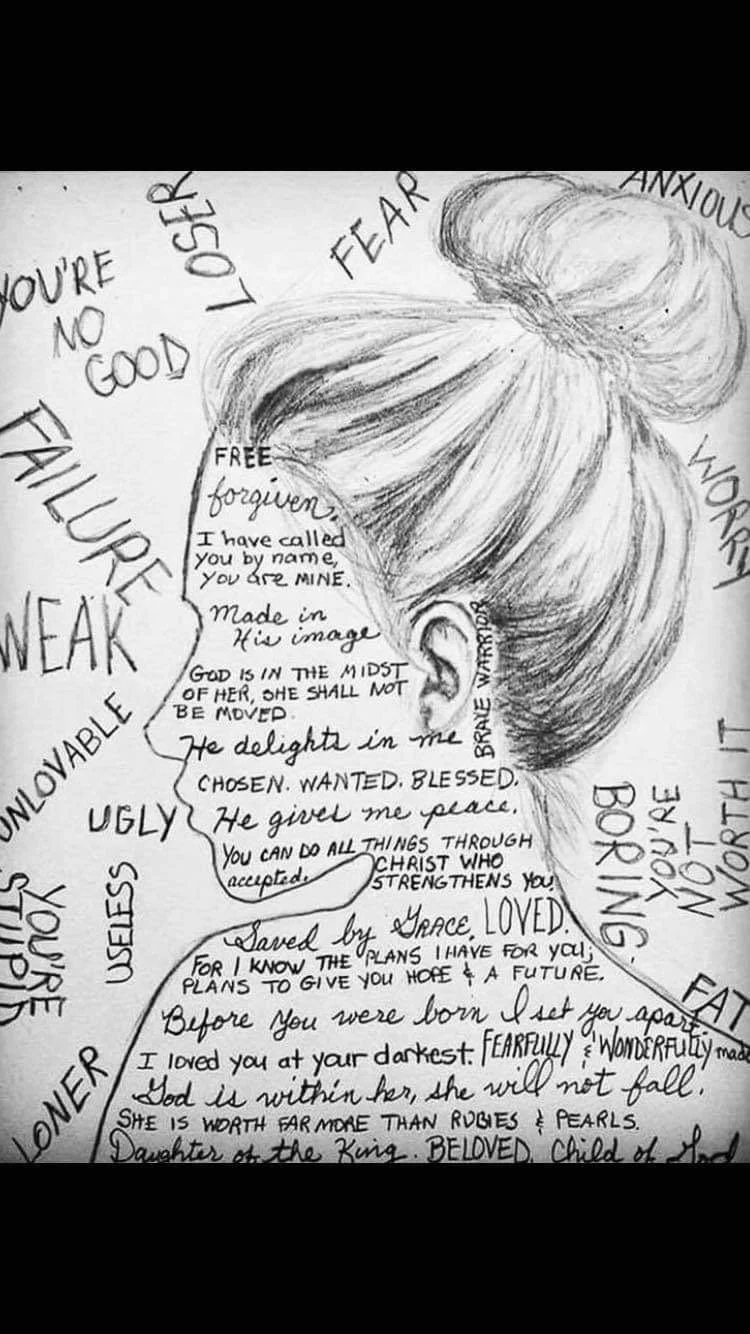 LOSER
FEAR
ANXIOUS
YOU'RE
NO
GOOD
FAILURE
WORRY
WEAK
UNLOVABLE
UGLY
USELESS
YOU'RE
STUPID
LONER
BORING
YOU'RE
NOT
WORTH IT
FAT
FREE
forgiven.
I have called
you by name,
you are MINE.
Made in
His image
GOD IS IN THE MIDST
OF HER, SHE SHALL NOT
BE MOVED.
BRAVE WARRIOR
He delights in me
CHOSEN. WANTED. BLESSED.
He gives me peace.
YOU CAN DO ALL THINGS THROUGH
CHRIST WHO
accepted.
STRENGTHENS YOU
Saved by GRACE. LOVED.
FOR I KNOW THE PLANS I HAVE FOR YOU;
PLANS TO GIVE YOU HOPE & A FUTURE.
Before you were born I set you apart
I loved you at your darkest. FEARFULLY & WONDERFULLY made
God is within her, she will not fall.
SHE IS WORTH FAR MORE THAN RUBIES & PEARLS.
Daughter of the King. BELOVED. Child of God